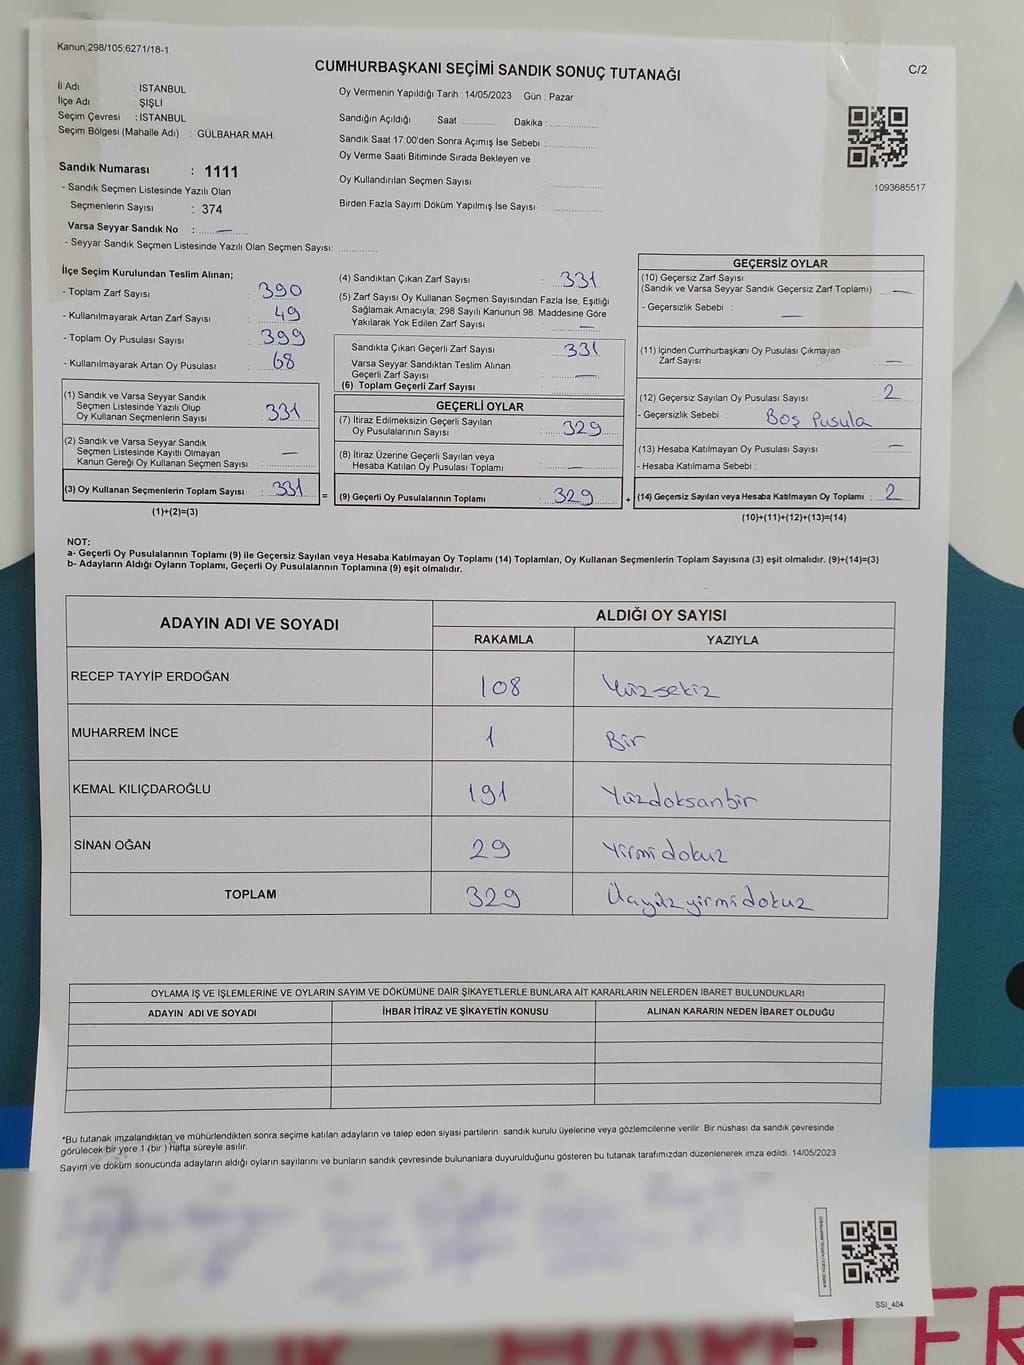 Kanun;298/105;6271/18-1
C/2
CUMHURBAŞKANI SEÇİMİ SANDIK SONUÇ TUTANAĞI
İl Adı : İSTANBUL
İlçe Adı : ŞİŞLİ
Seçim Çevresi : İSTANBUL
Seçim Bölgesi (Mahalle Adı) : GÜLBAHAR MAH.
Sandık Numarası : 1111
- Sandık Seçmen Listesinde Yazılı Olan
Seçmenlerin Sayısı : 374
Varsa Seyyar Sandık No : —
- Seyyar Sandık Seçmen Listesinde Yazılı Olan Seçmen Sayısı: ..............
Oy Vermenin Yapıldığı Tarih : 14/05/2023 Gün : Pazar
Sandığın Açıldığı Saat :........... Dakika :..................
Sandık Saat 17:00'den Sonra Açımış İse Sebebi :..................
Oy Verme Saati Bitiminde Sırada Bekleyen ve
Oy Kullandırılan Seçmen Sayısı :..................
Birden Fazla Sayım Döküm Yapılmış İse Sayısı :..................
1093685517
İlçe Seçim Kurulundan Teslim Alınan;
- Toplam Zarf Sayısı : 390
- Kullanılmayarak Artan Zarf Sayısı : 49
- Toplam Oy Pusulası Sayısı : 399
- Kullanılmayarak Artan Oy Pusulası : 68
(1) Sandık ve Varsa Seyyar Sandık
Seçmen Listesinde Yazılı Olup
Oy Kullanan Seçmenlerin Sayısı : 331
(2) Sandık ve Varsa Seyyar Sandık
Seçmen Listesinde Kayıtlı Olmayan
Kanun Gereği Oy Kullanan Seçmen Sayısı : —
(3) Oy Kullanan Seçmenlerin Toplam Sayısı : 331
(1)+(2)=(3)
(4) Sandıktan Çıkan Zarf Sayısı : 331
(5) Zarf Sayısı Oy Kullanan Seçmen Sayısından Fazla İse, Eşitliği
Sağlamak Amacıyla; 298 Sayılı Kanunun 98. Maddesine Göre
Yakılarak Yok Edilen Zarf Sayısı : —
Sandıkta Çıkan Geçerli Zarf Sayısı : 331
Varsa Seyyar Sandıktan Teslim Alınan
Geçerli Zarf Sayısı : —
(6) Toplam Geçerli Zarf Sayısı :
GEÇERLİ OYLAR
(7) İtiraz Edilmeksizin Geçerli Sayılan
Oy Pusulalarının Sayısı : 329
(8) İtiraz Üzerine Geçerli Sayılan veya
Hesaba Katılan Oy Pusulası Toplamı : —
= (9) Geçerli Oy Pusulalarının Toplamı : 329
GEÇERSİZ OYLAR
(10) Geçersiz Zarf Sayısı
(Sandık ve Varsa Seyyar Sandık Geçersiz Zarf Toplamı) : —
- Geçersizlik Sebebi : —
(11) İçinden Cumhurbaşkanı Oy Pusulası Çıkmayan
Zarf Sayısı : —
(12) Geçersiz Sayılan Oy Pusulası Sayısı : 2
- Geçersizlik Sebebi : Boş Pusula
(13) Hesaba Katılmayan Oy Pusulası Sayısı : —
- Hesaba Katılmama Sebebi :
+ (14) Geçersiz Sayılan veya Hesaba Katılmayan Oy Toplamı : 2
(10)+(11)+(12)+(13)=(14)
NOT:
a- Geçerli Oy Pusulalarının Toplamı (9) ile Geçersiz Sayılan veya Hesaba Katılmayan Oy Toplamı (14) Toplamları, Oy Kullanan Seçmenlerin Toplam Sayısına (3) eşit olmalıdır. (9)+(14)=(3)
b- Adayların Aldığı Oyların Toplamı, Geçerli Oy Pusulalarının Toplamına (9) eşit olmalıdır.
ADAYIN ADI VE SOYADI
ALDIĞI OY SAYISI
RAKAMLA YAZIYLA
RECEP TAYYİP ERDOĞAN 108 Yüzsekiz
MUHARREM İNCE 1 Bir
KEMAL KILIÇDAROĞLU 191 Yüzdoksanbir
SİNAN OĞAN 29 Yirmidokuz
TOPLAM 329 Üçyüzyirmidokuz
OYLAMA İŞ VE İŞLEMLERİNE VE OYLARIN SAYIM VE DÖKÜMÜNE DAİR ŞİKAYETLERLE BUNLARA AİT KARARLARIN NELERDEN İBARET BULUNDUKLARI
ADAYIN ADI VE SOYADI İHBAR İTİRAZ VE ŞİKAYETİN KONUSU ALINAN KARARIN NEDEN İBARET OLDUĞU
*Bu tutanak imzalandıktan ve mühürlendikten sonra seçime katılan adayların ve talep eden siyasi partilerin sandık kurulu üyelerine veya gözlemcilerine verilir. Bir nüshası da sandık çevresinde
görülecek bir yere 1 (bir) hafta süreyle asılır.
Sayım ve döküm sonucunda adayların aldığı oyların sayılarını ve bunların sandık çevresinde bulunanlara duyurulduğunu gösteren bu tutanak tarafımızdan düzenlenerek imza edildi. 14/05/2023
SSI_404